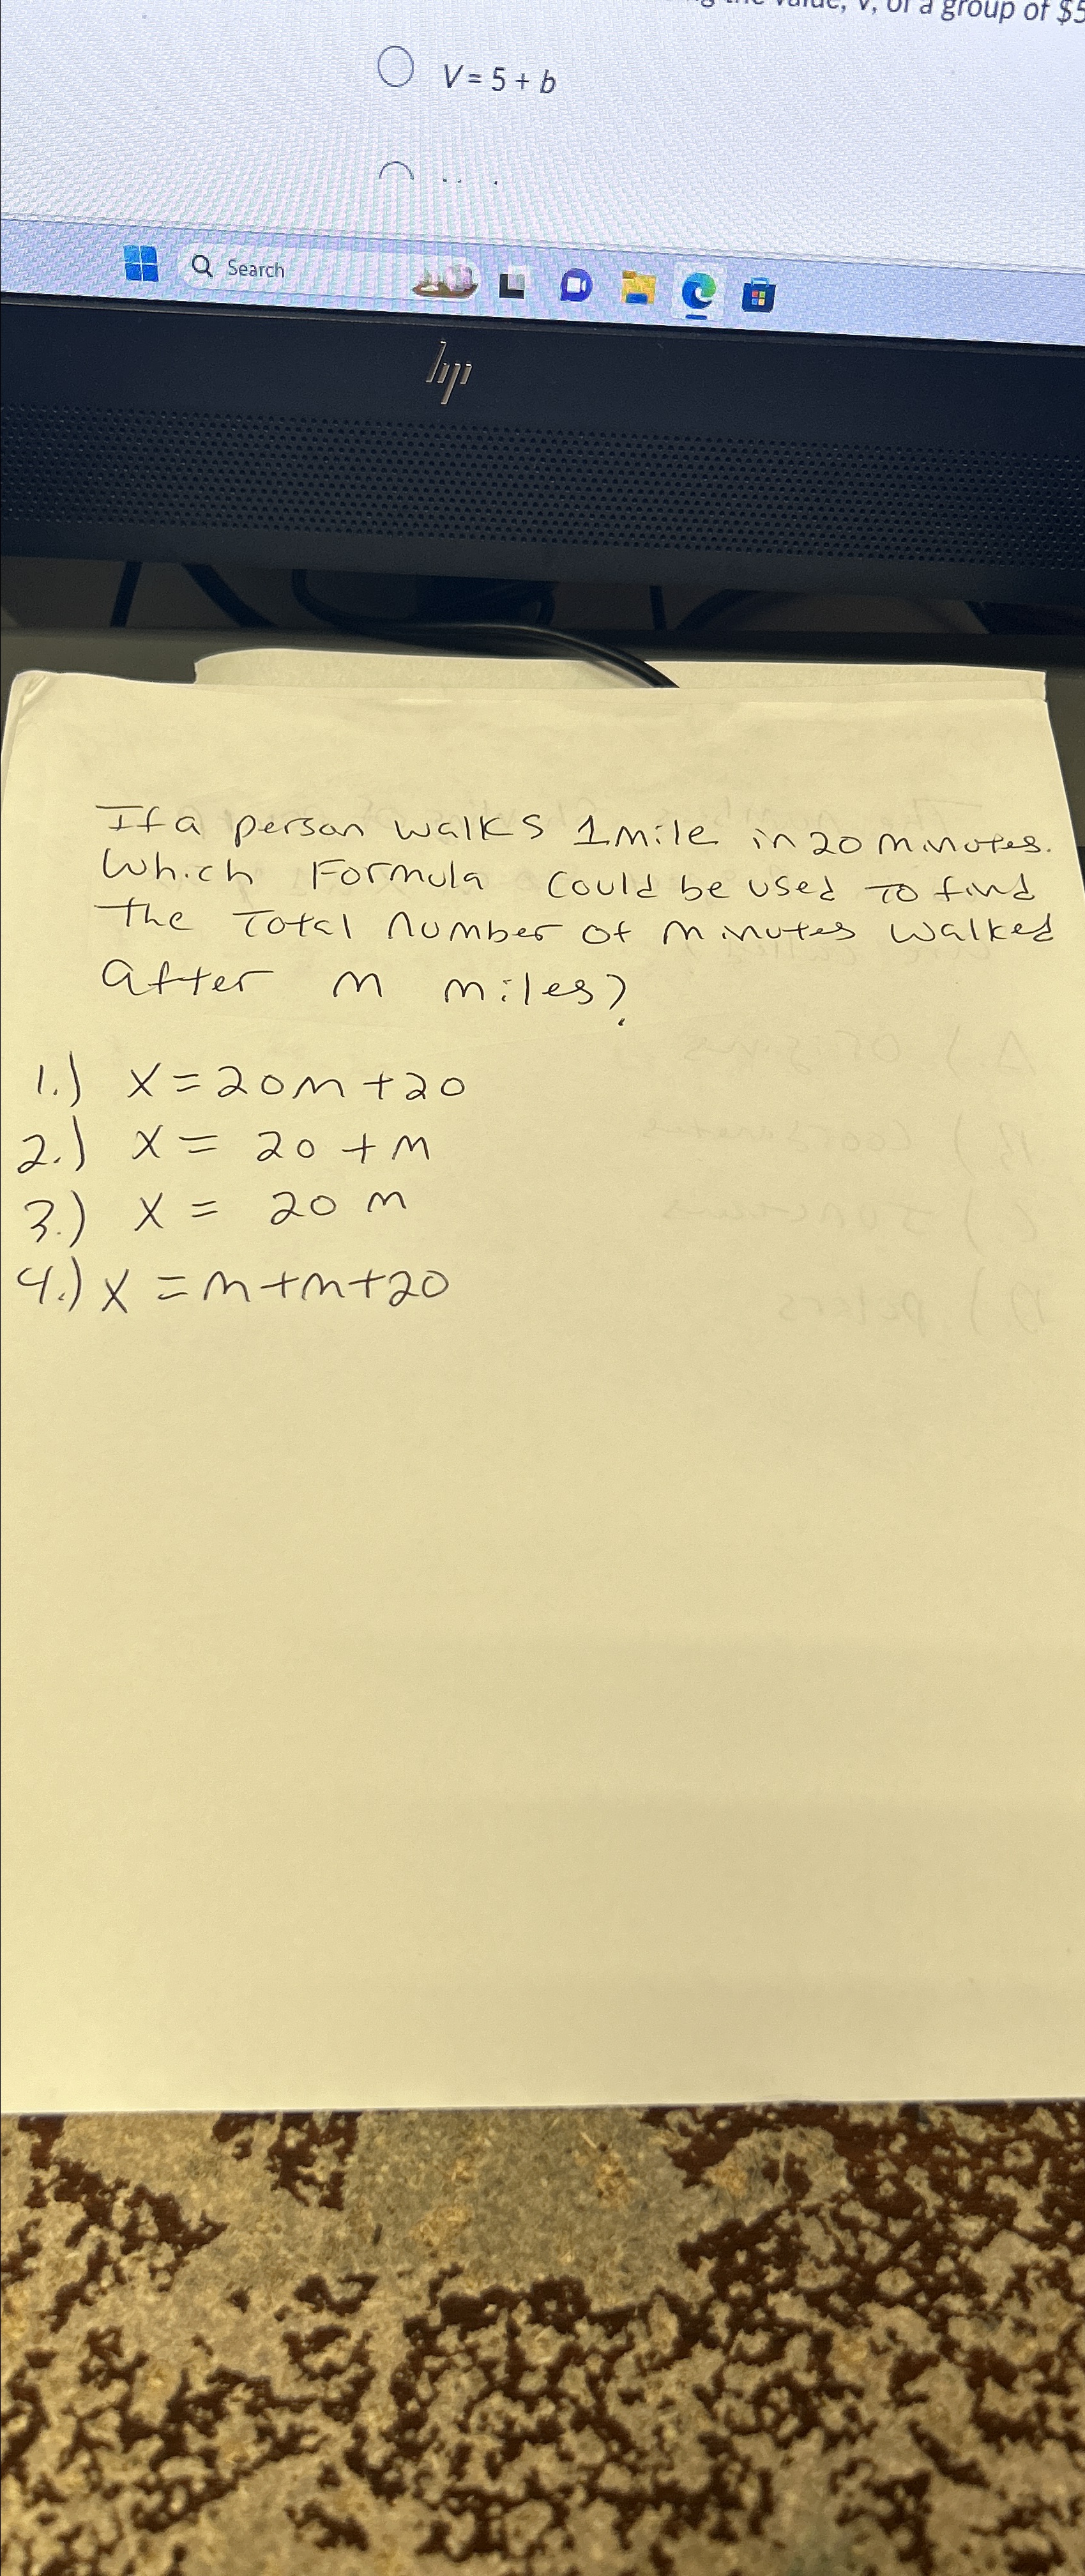 the value, v, of a group of $5
V = 5 + b
Search
hp
If a person walks 1 mile in 20 minutes.
Which Formula could be used to find
the Total number of minutes walked
after m miles?
1.) X = 20m + 20
2.) X = 20 + m
3.) X = 20 m
4.) X = m + m + 20